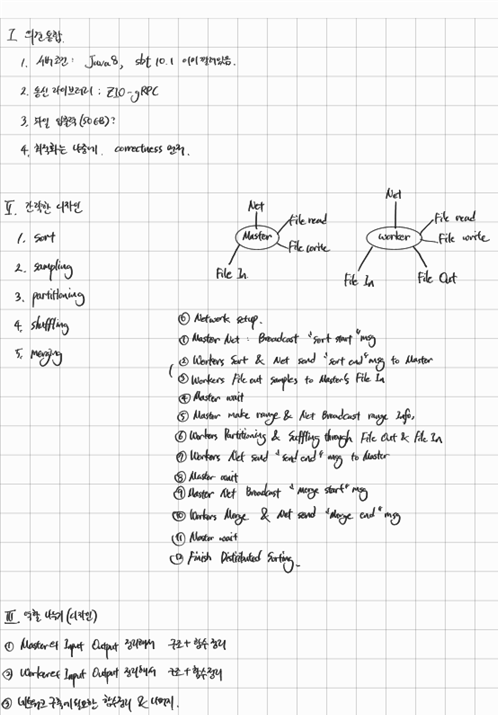 I. 의견종합
1. 서버조건: Java8, sbt 10.1 이미 깔려있음.
2. 통신 라이브러리: ZIO-gRPC
3. 파일 입출력(50GB)?
4. 최적화는 나중에. correctness 먼저.
II. 간략한 디자인
1. sort
2. sampling
3. partitioning
4. shuffling
5. merging
Net
Master
File read
File write
File In
Net
Worker
File read
File write
File In
File Out
⓪ Network setup.
① Master Net: Broadcast "Sort start" msg
② Workers Sort & Net send "sort end" msg to Master
③ Workers File out samples to Master's File In
④ Master wait
⑤ Master make range & Net Broadcast range Info,
⑥ Workers Partitioning & Suffling through File Out & File In
⑦ Workers Net send "send end" msg to Master
⑧ Master wait
⑨ Master Net Broadcast "Merge start" msg
⑩ Workers Merge & Net send "Merge end" msg
⑪ Master wait
⑫ Finish Distributed Sorting.
III. 역할 나누기(디자인)
① Master의 Input Output 정리해서 구조+함수정리
② Worker의 Input Output 정리해서 구조+함수정리
③ 네트워크 구축에 필요한 함수정리 & 나머지.